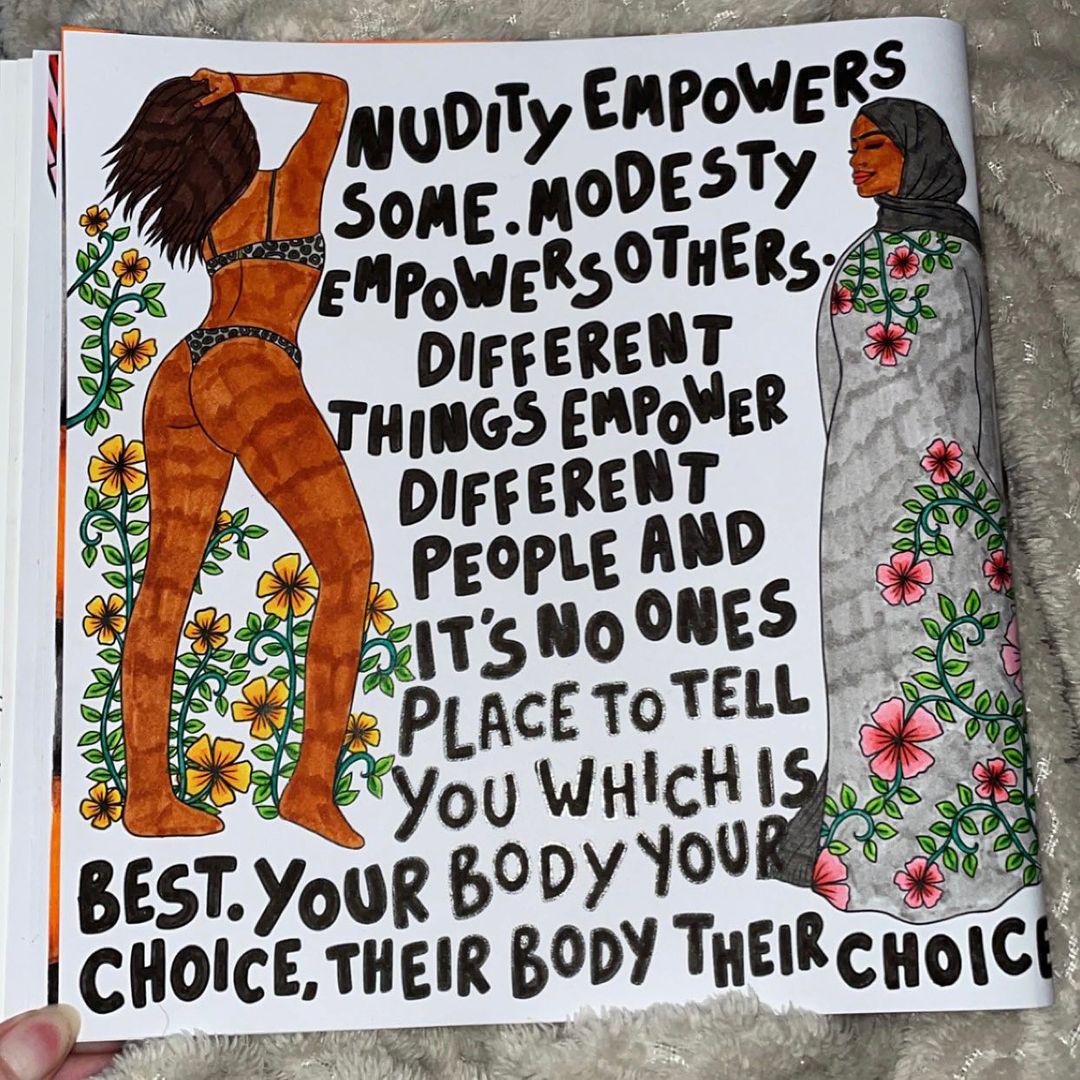 NUDITY EMPOWERS
SOME. MODESTY
EMPOWERS OTHERS.
DIFFERENT
THINGS EMPOWER
DIFFERENT
PEOPLE AND
IT'S NO ONES
PLACE TO TELL
YOU WHICH IS
BEST. YOUR BODY YOUR
CHOICE, THEIR BODY THEIR CHOICE